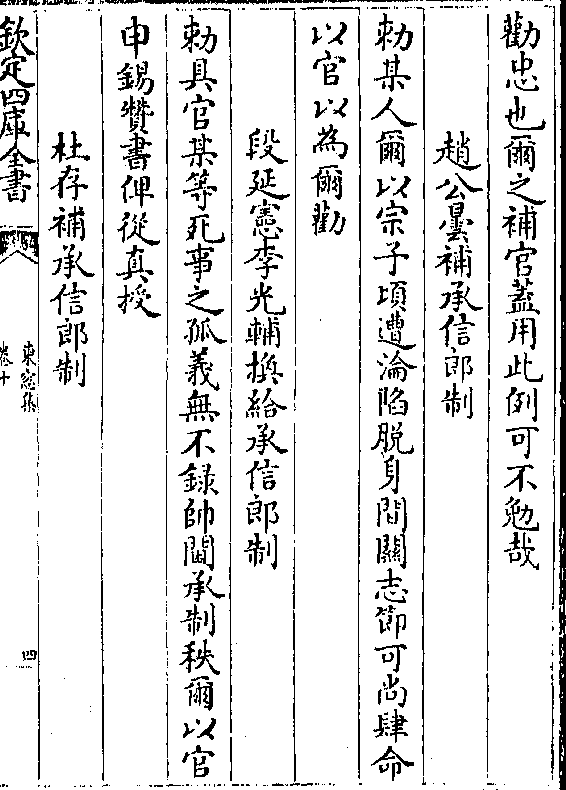 勸忠也爾之補官蓋用此例可不勉哉
趙公曇補承信郎制
勅某人爾以宗子頃遭淪陷脱身間關志節可尚肆命
以官以為爾勸
段延憲李光輔換給承信郎制
勅具官某等死事之孤義無不録帥閫承制秩爾以官
申錫贊書俾從真授
杜存補承信郎制
欽定四庫全書
東窓集
卷十
四